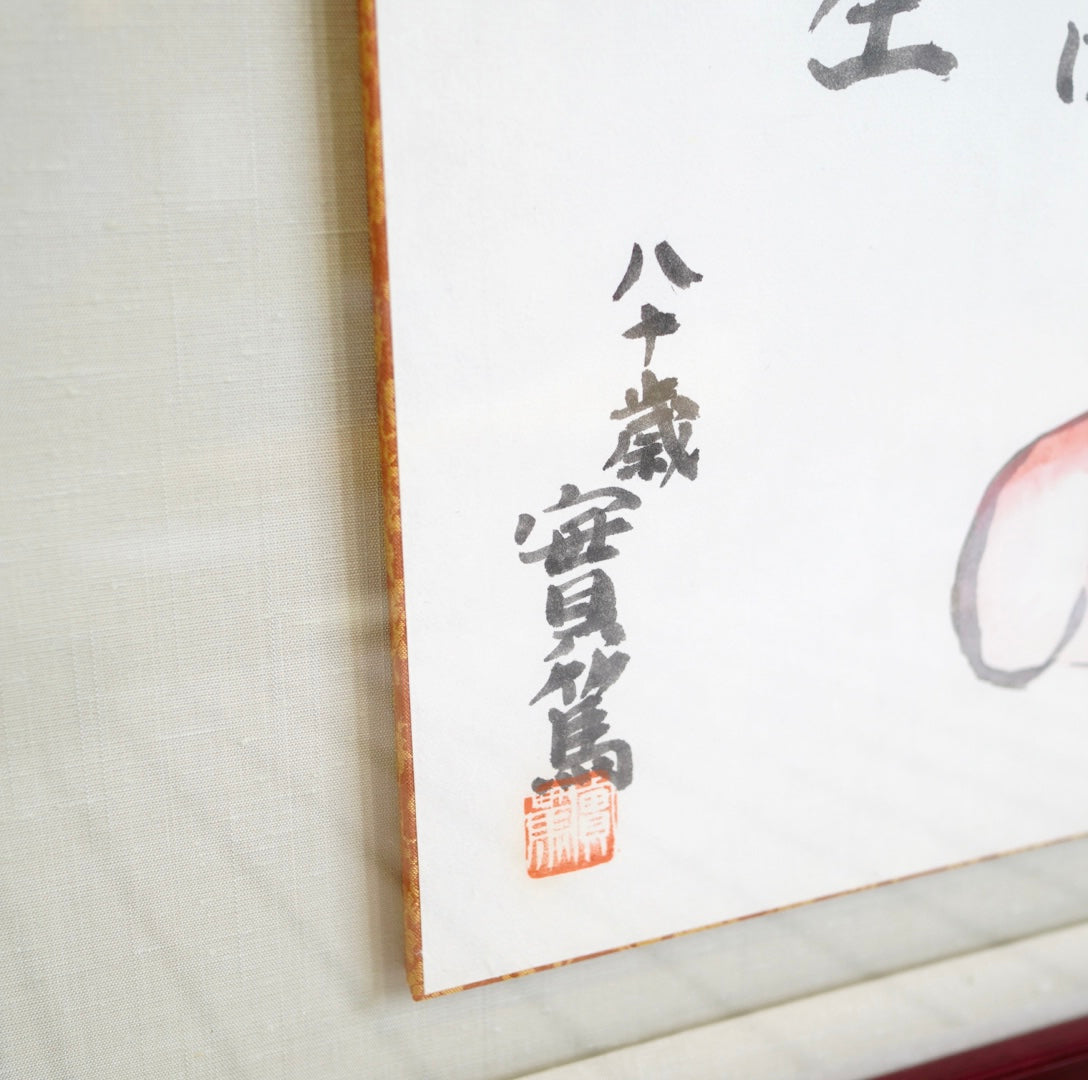 八十歳
實篤